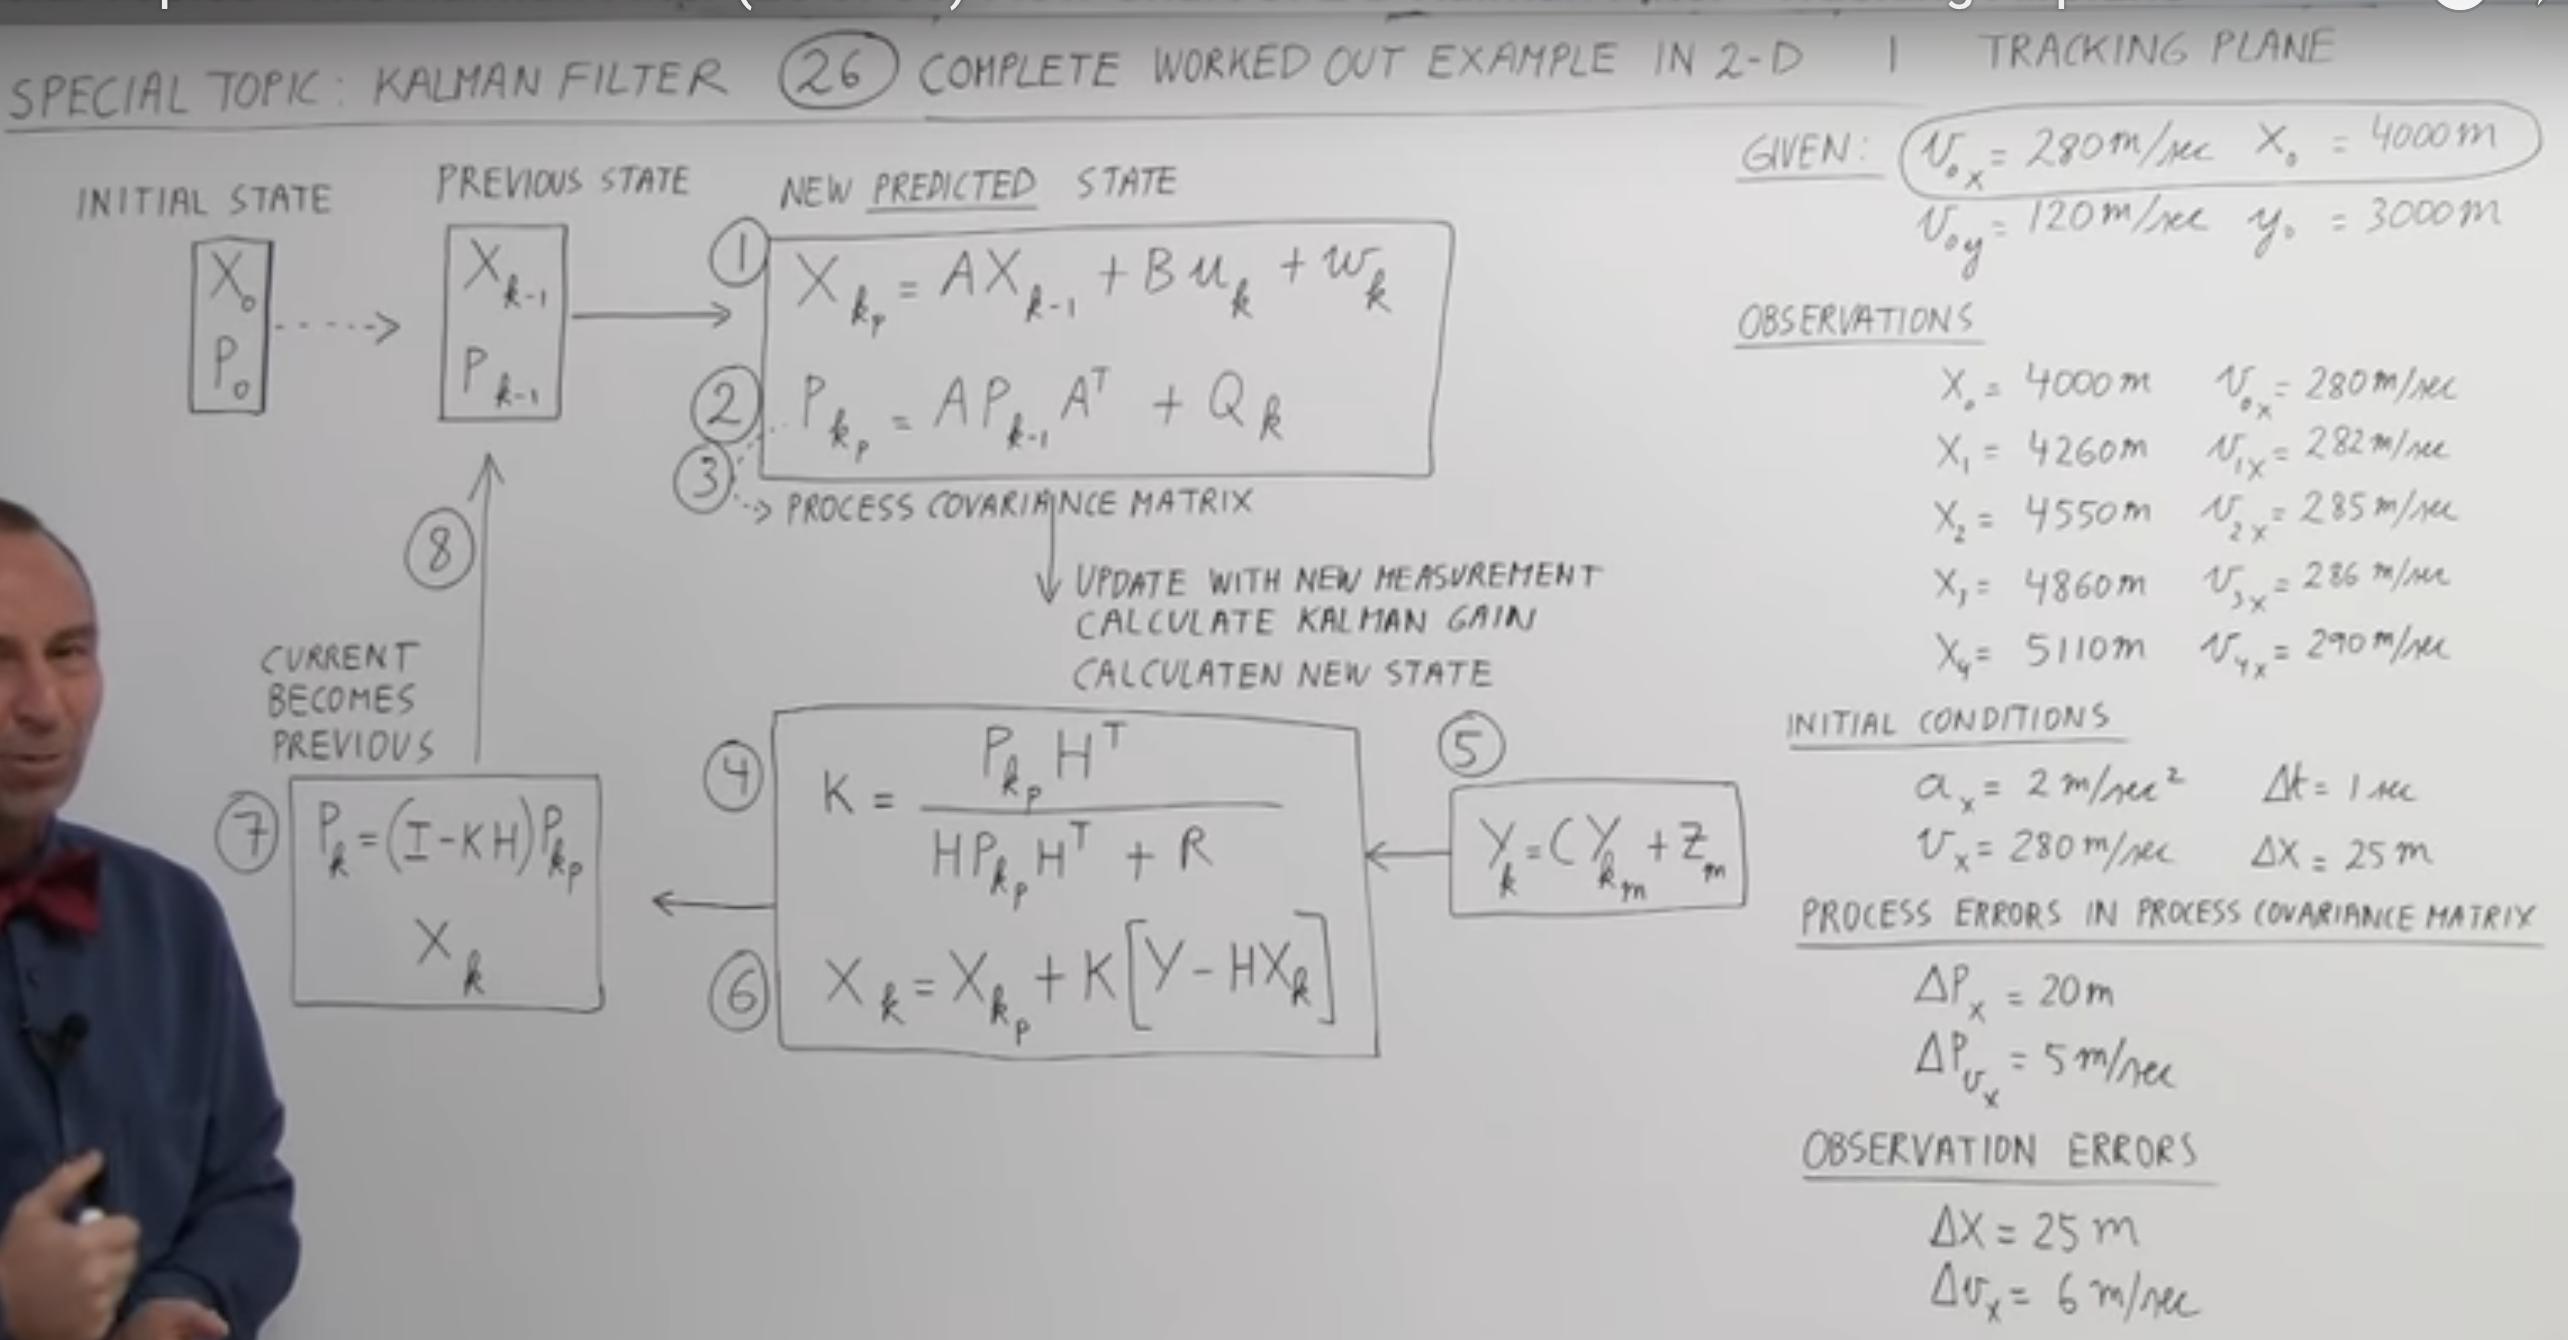 SPECIAL TOPIC: KALMAN FILTER (26) COMPLETE WORKED OUT EXAMPLE IN 2-D | TRACKING PLANE
INITIAL STATE
X₀
P₀
PREVIOUS STATE
X_{k-1}
P_{k-1}
NEW PREDICTED STATE
① X_{k_p} = AX_{k-1} + Bu_k + w_k
② P_{k_p} = AP_{k-1}A^T + Q_k
③ PROCESS COVARIANCE MATRIX
UPDATE WITH NEW MEASUREMENT
CALCULATE KALMAN GAIN
CALCULATEN NEW STATE
④ K = P_{k_p}H^T / HP_{k_p}H^T + R
⑤ Y_k = CY_{k_m} + Z_m
⑥ X_k = X_{k_p} + K[Y - HX_k]
⑦ P_k = (I - KH)P_{k_p}
X_k
⑧
CURRENT
BECOMES
PREVIOUS
GIVEN: v_{0x} = 280 m/sec X₀ = 4000 m
v_{0y} = 120 m/sec y₀ = 3000 m
OBSERVATIONS
X₀ = 4000 m v_{0x} = 280 m/sec
X₁ = 4260 m v_{1x} = 282 m/sec
X₂ = 4550 m v_{2x} = 285 m/sec
X₃ = 4860 m v_{3x} = 286 m/sec
X₄ = 5110 m v_{4x} = 290 m/sec
INITIAL CONDITIONS
a_x = 2 m/sec² Δt = 1 sec
v_x = 280 m/sec ΔX = 25 m
PROCESS ERRORS IN PROCESS COVARIANCE MATRIX
ΔP_x = 20 m
ΔP_{v_x} = 5 m/sec
OBSERVATION ERRORS
ΔX = 25 m
Δv_x = 6 m/sec